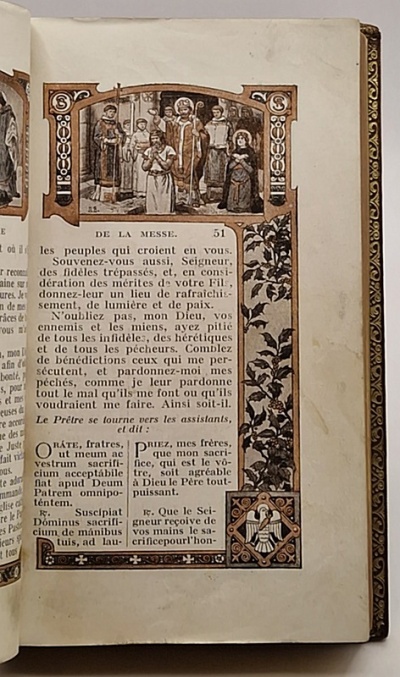 DE LA MESSE. 51
les peuples qui croient en vous.
Souvenez-vous aussi, Seigneur,
des fidèles trépassés, et, en consi-
dération des mérites de votre Fils,
donnez-leur un lieu de rafraîchis-
sement, de lumière et de paix.
N'oubliez pas, mon Dieu, vos
ennemis et les miens, ayez pitié
de tous les infidèles, des hérétiques
et de tous les pécheurs. Comblez
de bénédictions ceux qui me per-
sécutent, et pardonnez-moi mes
péchés, comme je leur pardonne
tout le mal qu'ils me font ou qu'ils
voudraient me faire. Ainsi soit-il.
Le Prêtre se tourne vers les assistants,
et dit :
ORÁTE, fratres,
ut meum ac
vestrum sacrifi-
cium acceptábile
fiat apud Deum
Patrem omnipo-
téntem.
℟. Suscipiat
Dóminus sacrifí-
cium de mánibus
tuis, ad lau-
PRIEZ, mes frères,
que mon sacrifi-
ce, qui est le vô-
tre, soit agréable
à Dieu le Père tout-
puissant.
℟. Que le Sei-
gneur reçoive de
vos mains le sa-
crifice pour l'hon-